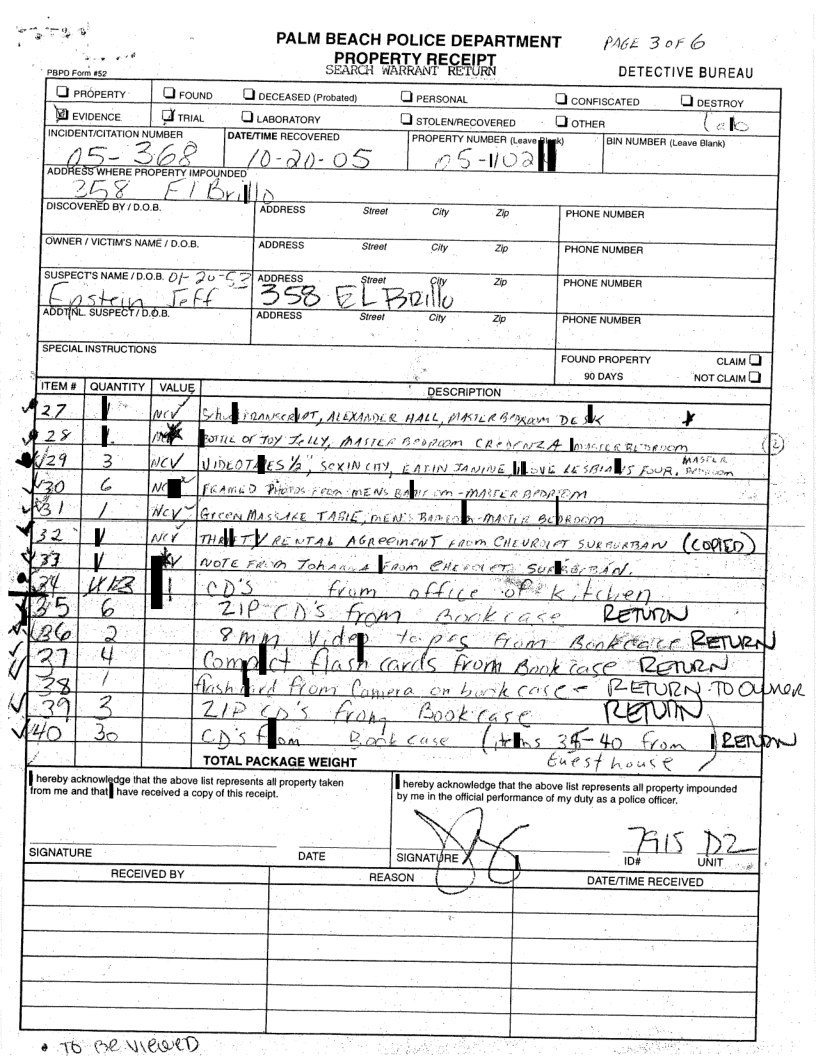 PALM BEACH POLICE DEPARTMENT PAGE 3 OF 6
PROPERTY RECEIPT
SEARCH WARRANT RETURN
PBPD Form #52 DETECTIVE BUREAU
PROPERTY FOUND DECEASED (Probated) PERSONAL CONFISCATED DESTROY
EVIDENCE TRIAL LABORATORY STOLEN/RECOVERED OTHER
INCIDENT/CITATION NUMBER DATE/TIME RECOVERED PROPERTY NUMBER (Leave Blank) BIN NUMBER (Leave Blank)
05-368 10-20-05 05-1102
ADDRESS WHERE PROPERTY IMPOUNDED
358 El Brillo
DISCOVERED BY / D.O.B. ADDRESS Street City Zip PHONE NUMBER
OWNER / VICTIM'S NAME / D.O.B. ADDRESS Street City Zip PHONE NUMBER
SUSPECT'S NAME / D.O.B. 01-20-53 ADDRESS Street City Zip PHONE NUMBER
Epstein Jeff 358 EL Brillo
ADDTNL. SUSPECT / D.O.B. ADDRESS Street City Zip PHONE NUMBER
SPECIAL INSTRUCTIONS FOUND PROPERTY CLAIM
90 DAYS NOT CLAIM
ITEM # QUANTITY VALUE DESCRIPTION
27 1 NCV TRANSCRIPT, ALEXANDER HALL, MASTER BEDROOM DESK
28 1 BOTTLE OF JOY JELLY, MASTER BEDROOM CREDENZA MASTER BEDROOM (2)
29 3 NCV VIDEOTAPES 1/2", SEX IN CITY, EATIN JANINE, I LOVE LESBIANS FOUR. MASTER BEDROOM
30 6 FRAMED PHOTOS FROM MENS BATHROOM-MASTER BEDROOM
31 1 NCV GREEN MASSAGE TABLE, MEN'S BATHROOM-MASTER BEDROOM
32 1 NCV THRIFTY RENTAL AGREEMENT FROM CHEVROLET SUBURBAN (COPIED)
33 1 NOTE FROM JOHANNA FROM CHEVROLET SUBURBAN.
34 CD'S from office of kitchen
35 6 ZIP CD'S from Bookcase RETURN
36 2 8mm Video tapes from Bookcase RETURN
37 4 Compact flash cards from Bookcase RETURN
38 1 flashcard from Camera on bookcase - RETURN TO OWNER
39 3 ZIP CD'S from Bookcase RETURN
40 30 CD's from Bookcase (items 35-40 from RETURN
TOTAL PACKAGE WEIGHT Guesthouse )
I hereby acknowledge that the above list represents all property taken
from me and that I have received a copy of this receipt.
I hereby acknowledge that the above list represents all property impounded
by me in the official performance of my duty as a police officer.
7915 D2
SIGNATURE DATE SIGNATURE ID# UNIT
RECEIVED BY REASON DATE/TIME RECEIVED
• TO BE VIEWED